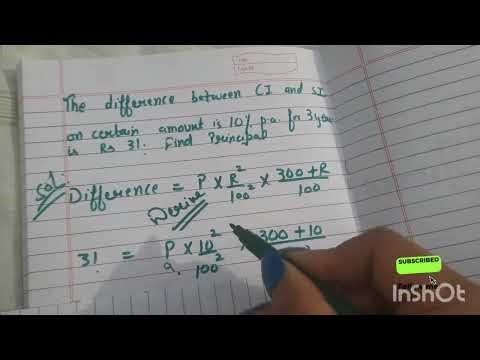 The difference between CI and SI
on certain amount is 10% p.a. for 3 years
is Rs 31. Find Principal
Sol.
Difference = P × R² / 100² × 300 + R / 100
Derive
31 = P × 10² / 100² × 300 + 10
SUBSCRIBED
InShot